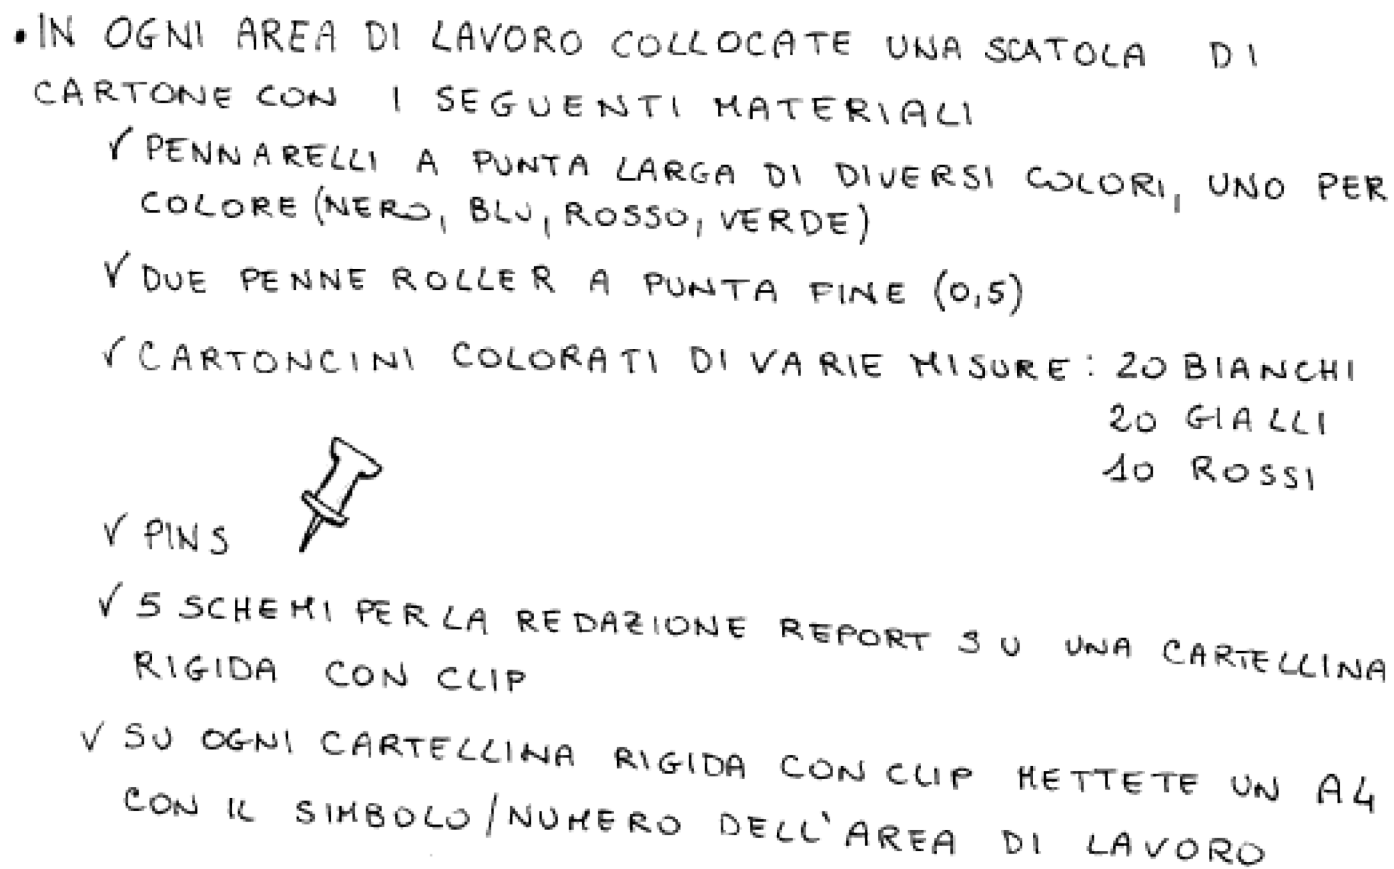 • IN OGNI AREA DI LAVORO COLLOCATE UNA SCATOLA DI
CARTONE CON I SEGUENTI MATERIALI
√ PENNARELLI A PUNTA LARGA DI DIVERSI COLORI, UNO PER
COLORE (NERO, BLU, ROSSO, VERDE)
√ DUE PENNE ROLLER A PUNTA FINE (0,5)
√ CARTONCINI COLORATI DI VARIE MISURE: 20 BIANCHI
20 GIALLI
10 ROSSI
√ PINS
√ 5 SCHEMI PER LA REDAZIONE REPORT SU UNA CARTELLINA
RIGIDA CON CLIP
√ SU OGNI CARTELLINA RIGIDA CON CLIP METTETE UN A4
CON IL SIMBOLO/NUMERO DELL'AREA DI LAVORO